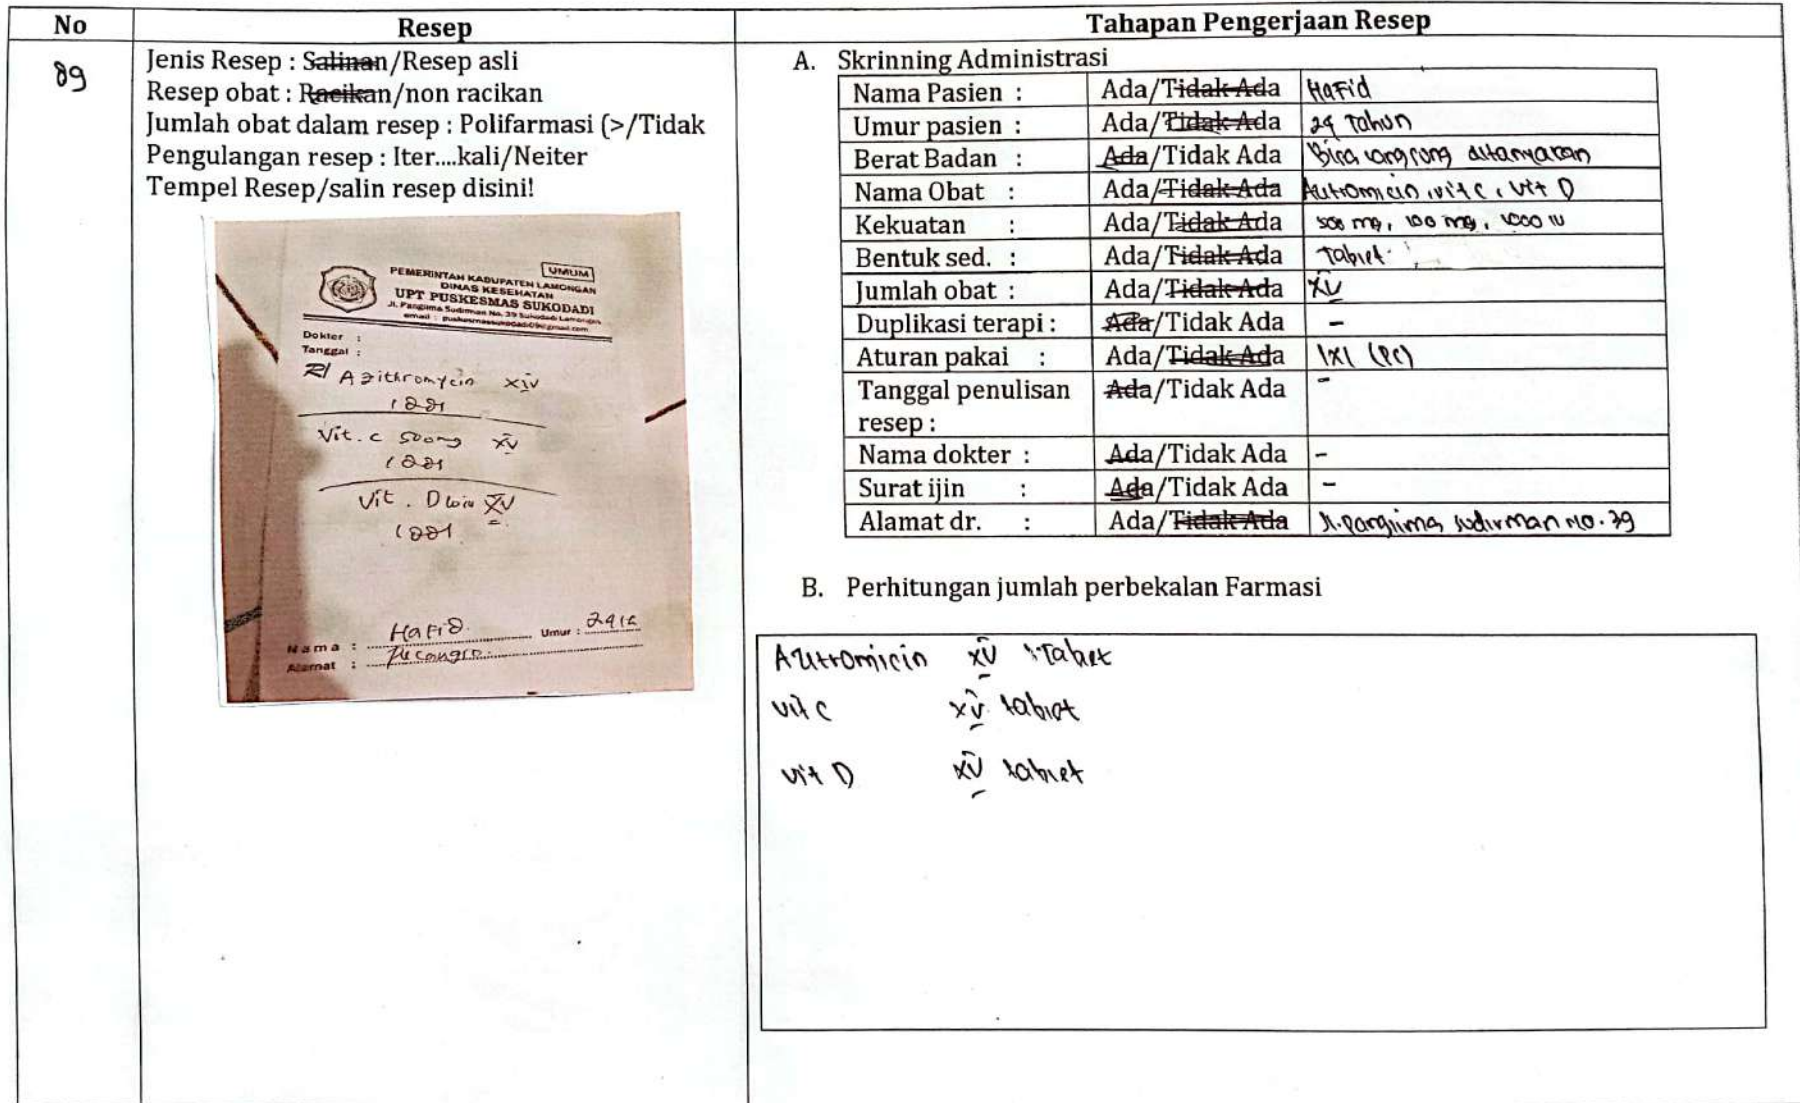 No
Resep
Tahapan Pengerjaan Resep
89
Jenis Resep : Salinan/Resep asli
Resep obat : Racikan/non racikan
Jumlah obat dalam resep : Polifarmasi (>/Tidak
Pengulangan resep : Iter....kali/Neiter
Tempel Resep/salin resep disini!
UMUM
PEMERINTAH KABUPATEN LAMONGAN
DINAS KESEHATAN
UPT PUSKESMAS SUKODADI
Jl. Panglima Sudirman No. 39 Sukodadi Lamongan
Dokter :
Tanggal :
R/ Azithromycin XIV
1dd1
Vit. C 500mg XV
1dd1
Vit. D XV
1dd1
Nama : Hafid Umur : 29 th
Alamat :
A. Skrinning Administrasi
Nama Pasien : Ada/Tidak Ada Hafid
Umur pasien : Ada/Tidak Ada 29 Tahun
Berat Badan : Ada/Tidak Ada Bisa langsung ditanyakan
Nama Obat : Ada/Tidak Ada Azitromicin, vit C, vit D
Kekuatan : Ada/Tidak Ada 500 mg, 100 mg, 1000 IU
Bentuk sed. : Ada/Tidak Ada Tablet
Jumlah obat : Ada/Tidak Ada XV
Duplikasi terapi : Ada/Tidak Ada -
Aturan pakai : Ada/Tidak Ada 1x1 (PC)
Tanggal penulisan Ada/Tidak Ada -
resep :
Nama dokter : Ada/Tidak Ada -
Surat ijin : Ada/Tidak Ada -
Alamat dr. : Ada/Tidak Ada Jl. Panglima Sudirman No. 39
B. Perhitungan jumlah perbekalan Farmasi
Azitromicin XV Tablet
vit C XV tablet
vit D XV tablet